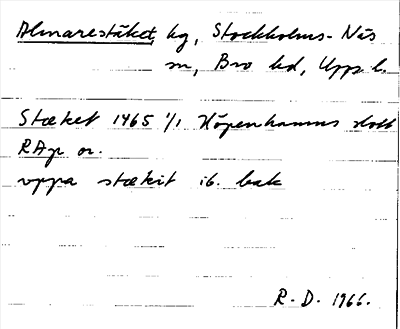 Almarestäket, kg, Stockholms-Näs
sn, Bro hd, Upps l.
Stæket 1465 1/1 Köpenhamns slott
RAp or.
vppa stækit ib. bak
R. D. 1966.